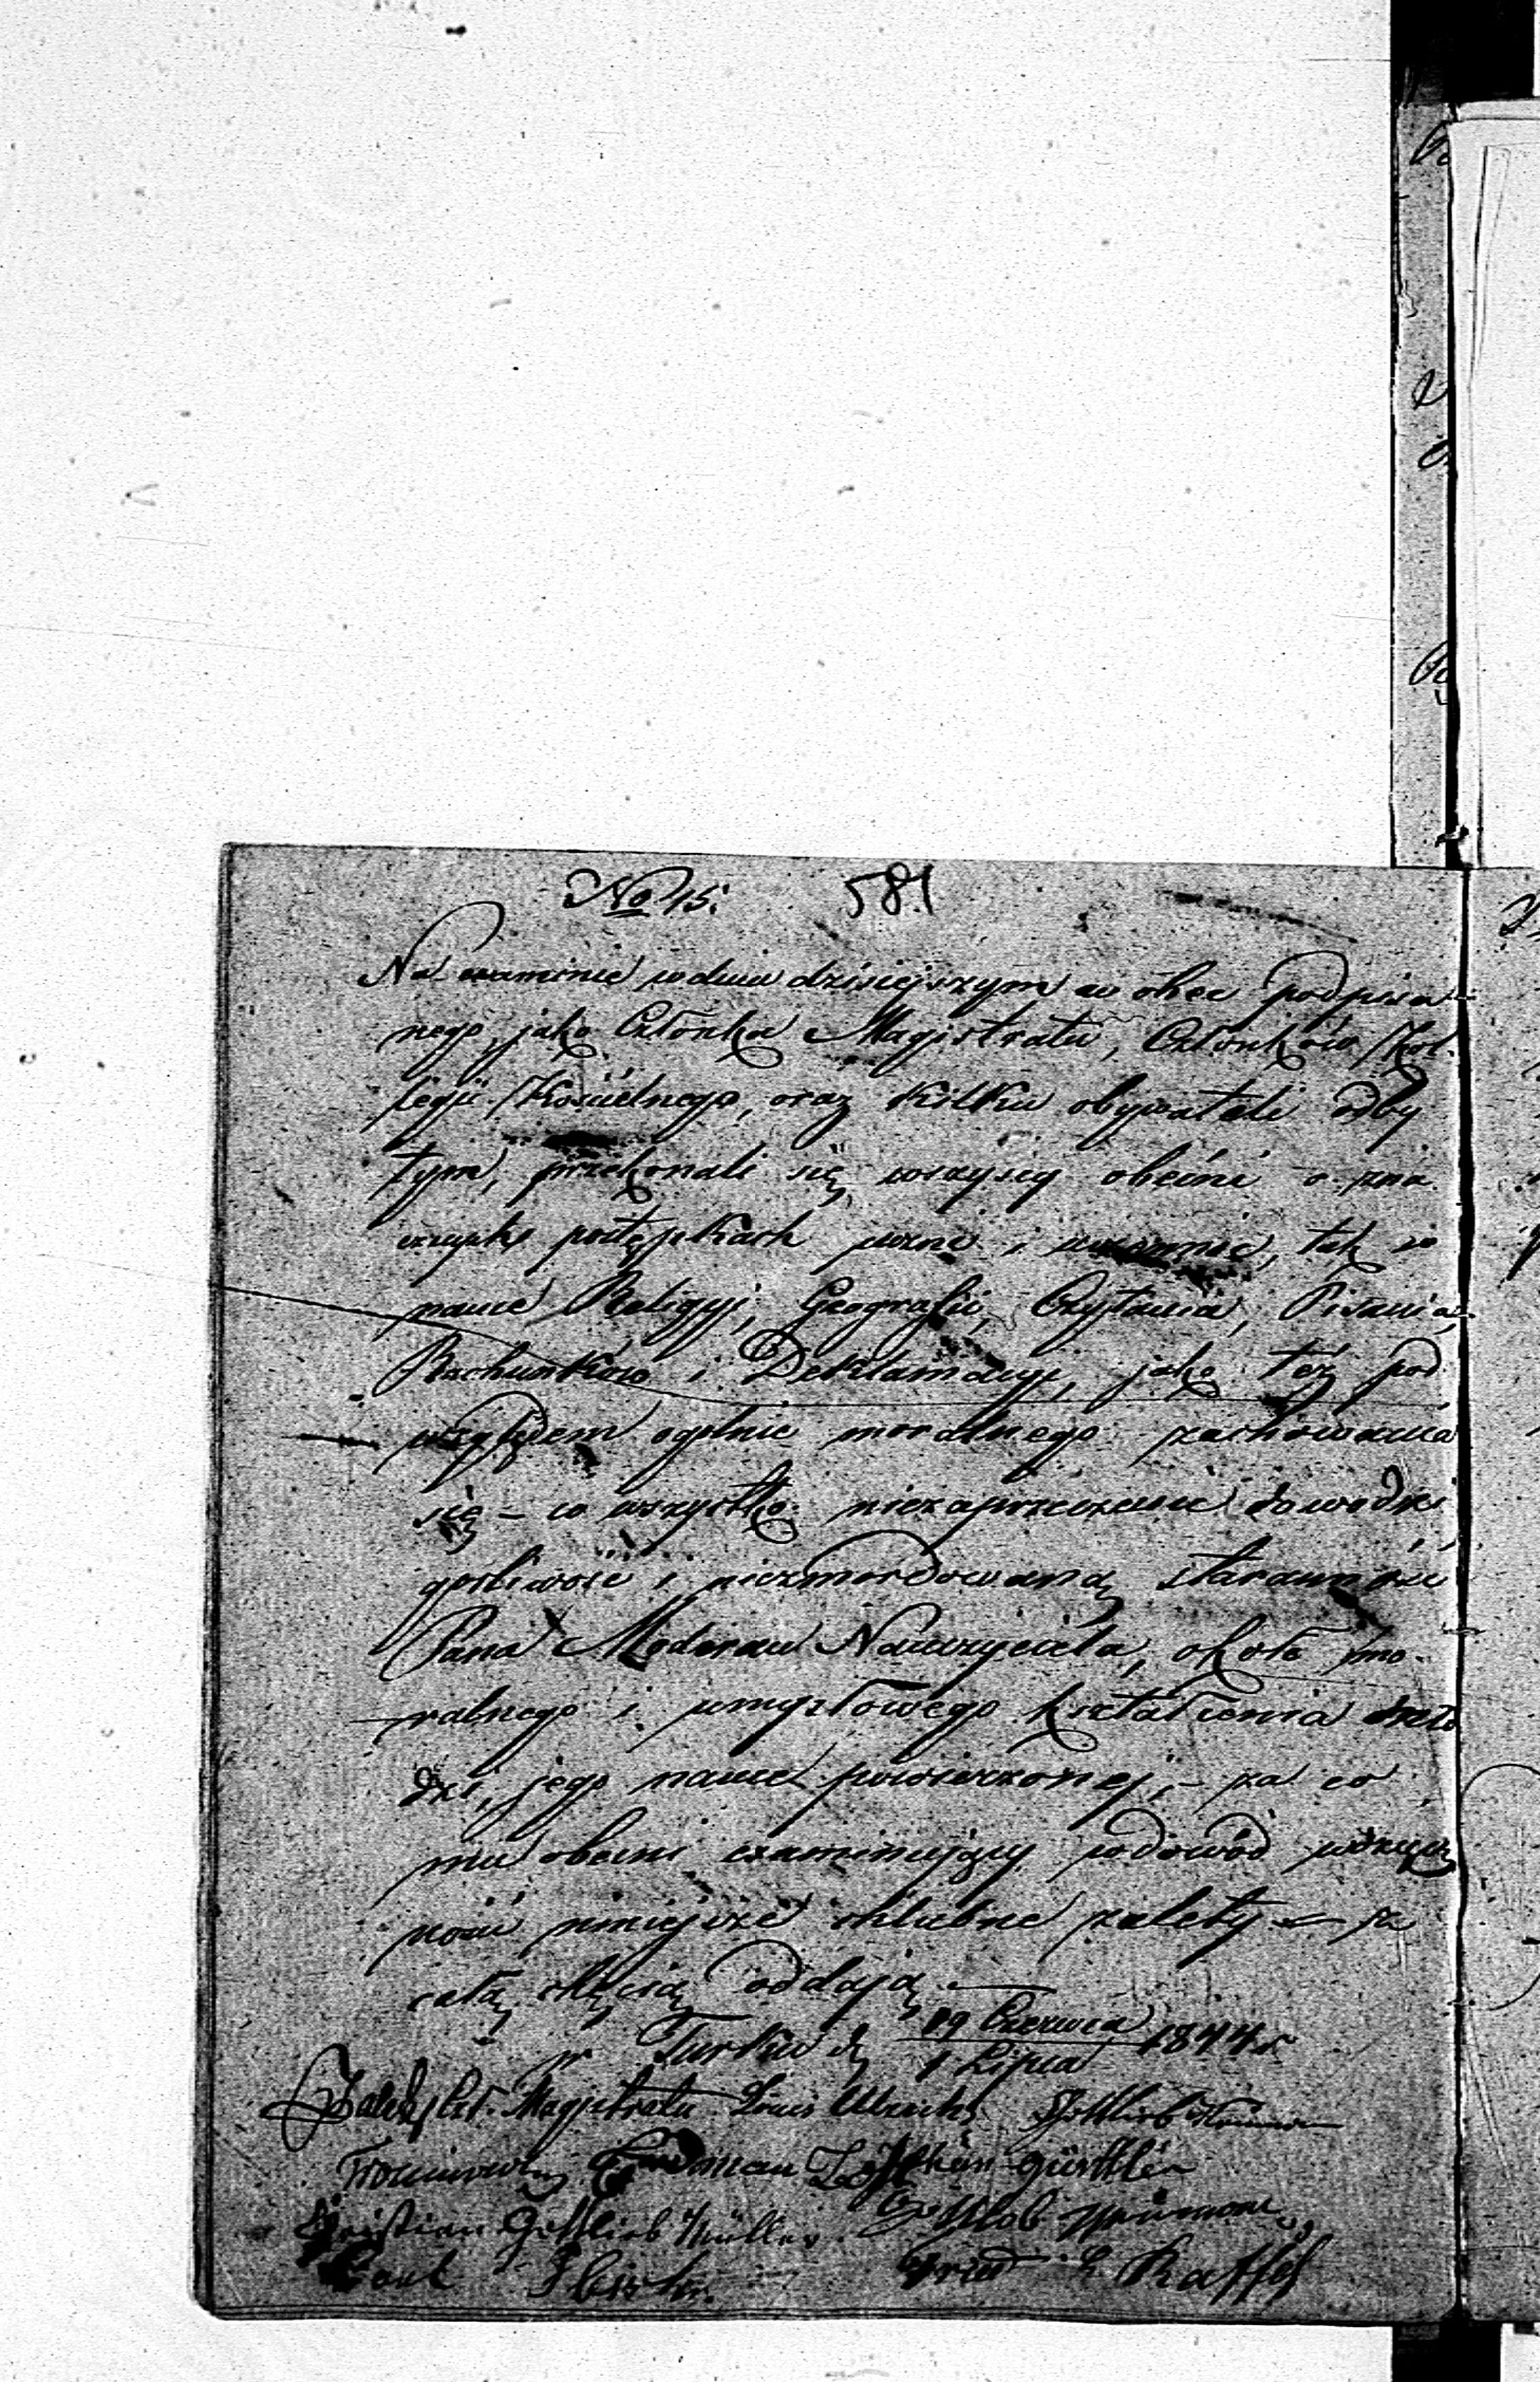 No 15. 581
Na examinie w dniu dzisiejszym w obec podpisa
nego, jako Członka Magistratu, Członków Kol-
legii Kościelnego, oraz kilku obywateli odby
tym, przekonali się wszyscy obecni o zna
cznych postępkach uczni i uczennic, tak w
nauce Religyj, Geografii, Czytania, Pisania,
Rachunków i Deklamacyi, jako też pod
względem ogólnie moralnego zachowania
się – co wszystko niezaprzeczenie dowodzi
gorliwość i niezmordowaną staranność
Pana Nauczyciela, około mo-
ralnego i umysłowego kształcenia mło
dzi, jego nauce powierzonej, – za co
mu obecni examinujący w dowód wdzięcz
ności niniejsze chlubne zalety – z
całą chęcią oddają. –
w Turku d. 19 Czerwca / 1 Lipca 1844 r.
Magistratu Gottlieb
Gürttler
Christian Gottlieb Müller Gottlob
Fried